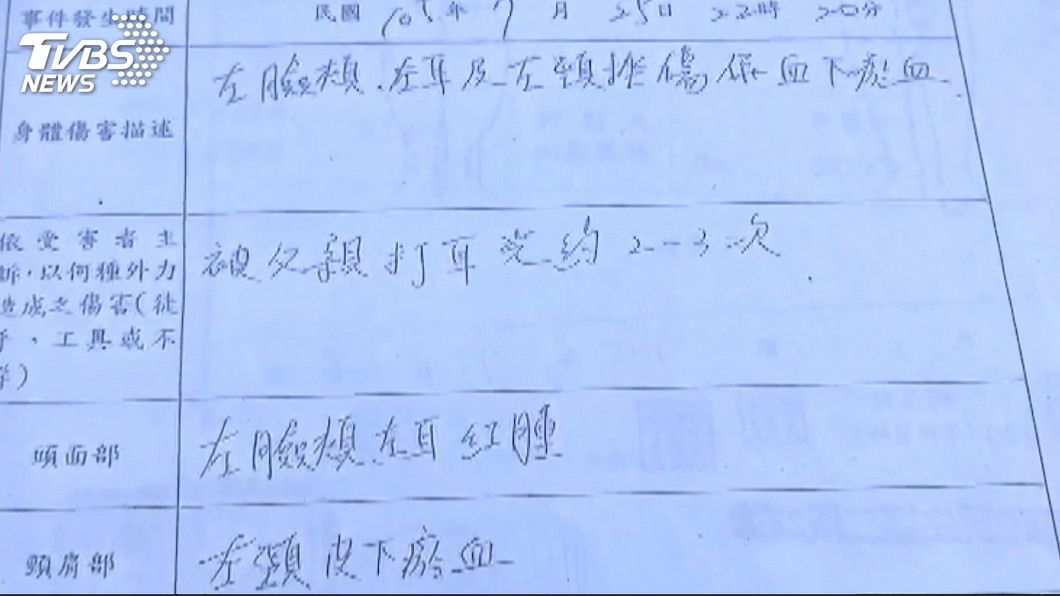 TVBS
NEWS
事件發生時間 民國 105 年 7 月 25 日 22 時 20 分
身體傷害描述 左臉頰、左耳及左頸挫傷併皮下瘀血
依受害者主
訴,以何種外力
造成之傷害(徒
手、工具或不
詳)
被父親打耳光約2-3次
頭面部 左臉頰左耳紅腫
頸肩部 左頸皮下瘀血